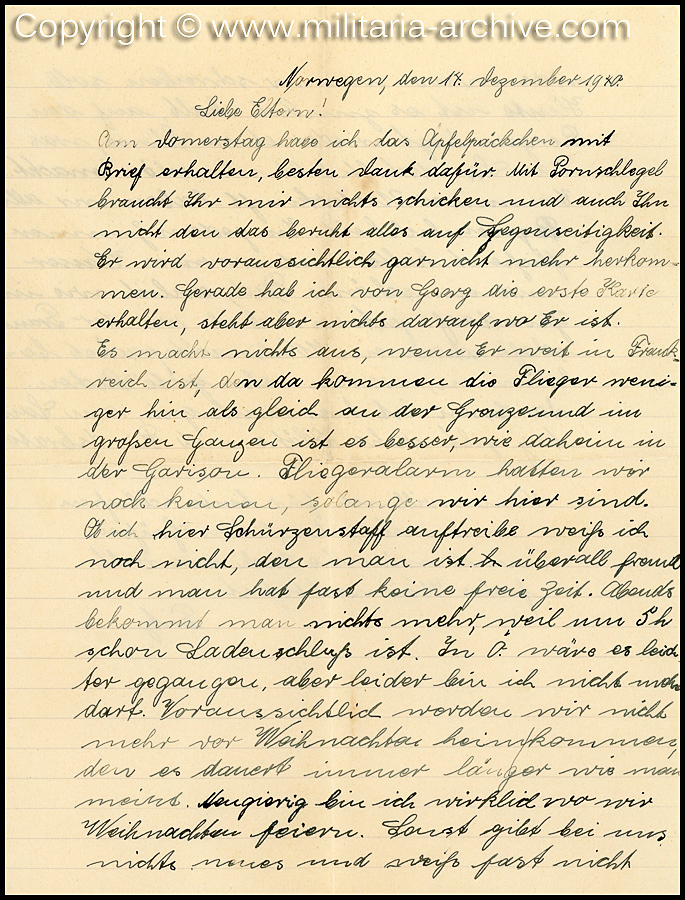 Copyright © www.militaria-archive.com
Norwegen, den 14. Dezember 1940.
Liebe Eltern!
Am Donnerstag habe ich das Apfelpäckchen mit
Brief erhalten, besten Dank dafür. Mit Pornschlegel
braucht Ihr mir nichts schicken und auch Ihn
nicht den das beruht alles auf Gegenseitigkeit.
Er wird voraussichtlich garnicht mehr herkom-
men. Gerade hab ich von Georg die erste Karte
erhalten, steht aber nichts darauf wo Er ist.
Es macht nichts aus, wenn Er weit in Frank-
reich ist, den da kommen die Flieger weni-
ger hin als gleich an der Grenze und im
großen Ganzen ist es besser, wie daheim in
der Garison. Fliegeralarm hatten wir
noch keinen, solange wir hier sind.
Ob ich hier Schürzenstoff auftreibe weiß ich
noch nicht, den man ist überall fremd
und man hat fast keine freie Zeit. Abends
bekommt man nichts mehr, weil um 5 h
schon Ladenschluß ist. In O. wäre es leich-
ter gegangen, aber leider bin ich nicht mehr
dort. Voraussichtlich werden wir nicht
mehr vor Weihnachten heimkommen,
den es dauert immer länger wie man
meint. Neugierig bin ich wirklich wo wir
Weihnachten feiern. Sonst gibt bei uns
nichts neues und weiß fast nicht